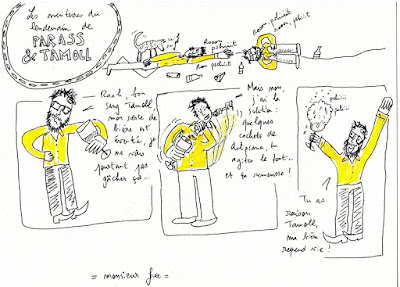 Les aventures du
lendemain de
PARASS
& TAMOLL
Rooon
pshiuit
Ron pshuit
Rooon pshiuit
Raah, bon
sang Tamoll
mon reste de
bière est
éventé, je
ne vais
pourtant pas
gâcher ça...
Mais non,
j'ai la
solution :
quelques
cachets de
doliprane, tu
agites le tout..
et ça remousse !
pshiii
Tu as
raison
Tamoll,
ma bière
reprend vie !
= monsieur free =